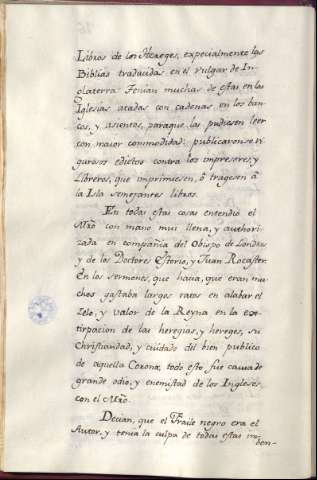 Libros de los Hereges, especialmente las
Biblias traducidas en el vulgar de In-
glaterra. Tenian muchas de estas en las
Iglesias atadas con cadenas, en los ban-
cos, y asientos, paraque las pudiesen leer
con maior commodidad: publicaronse ri-
gurosos edictos contra los impresores, y
Libreros, que imprimiesen, ô trageran â
la Isla semejantes libros.
En todas estas cosas entendiò el
Mrô con mano mui llena, y authori-
zada en compañia del Obispo de Londres
y de los Doctores Estorio, y Juan Rocaster.
En los sermones, que hacia, que eran mu-
chos gastaba largos ratos en alabar el
zelo, y valor de la Reyna en la ex-
tirpacion de las heregias, y hereges, su
Christiandad, y cuidado del bien publico
de aquella Corona, todo esto fue causa de
grande odio, y enemistad de los Ingleses,
con el Mrô.
Decian, que el Fraile negro era el
Autor, y tenia la culpa de todas estas
den-